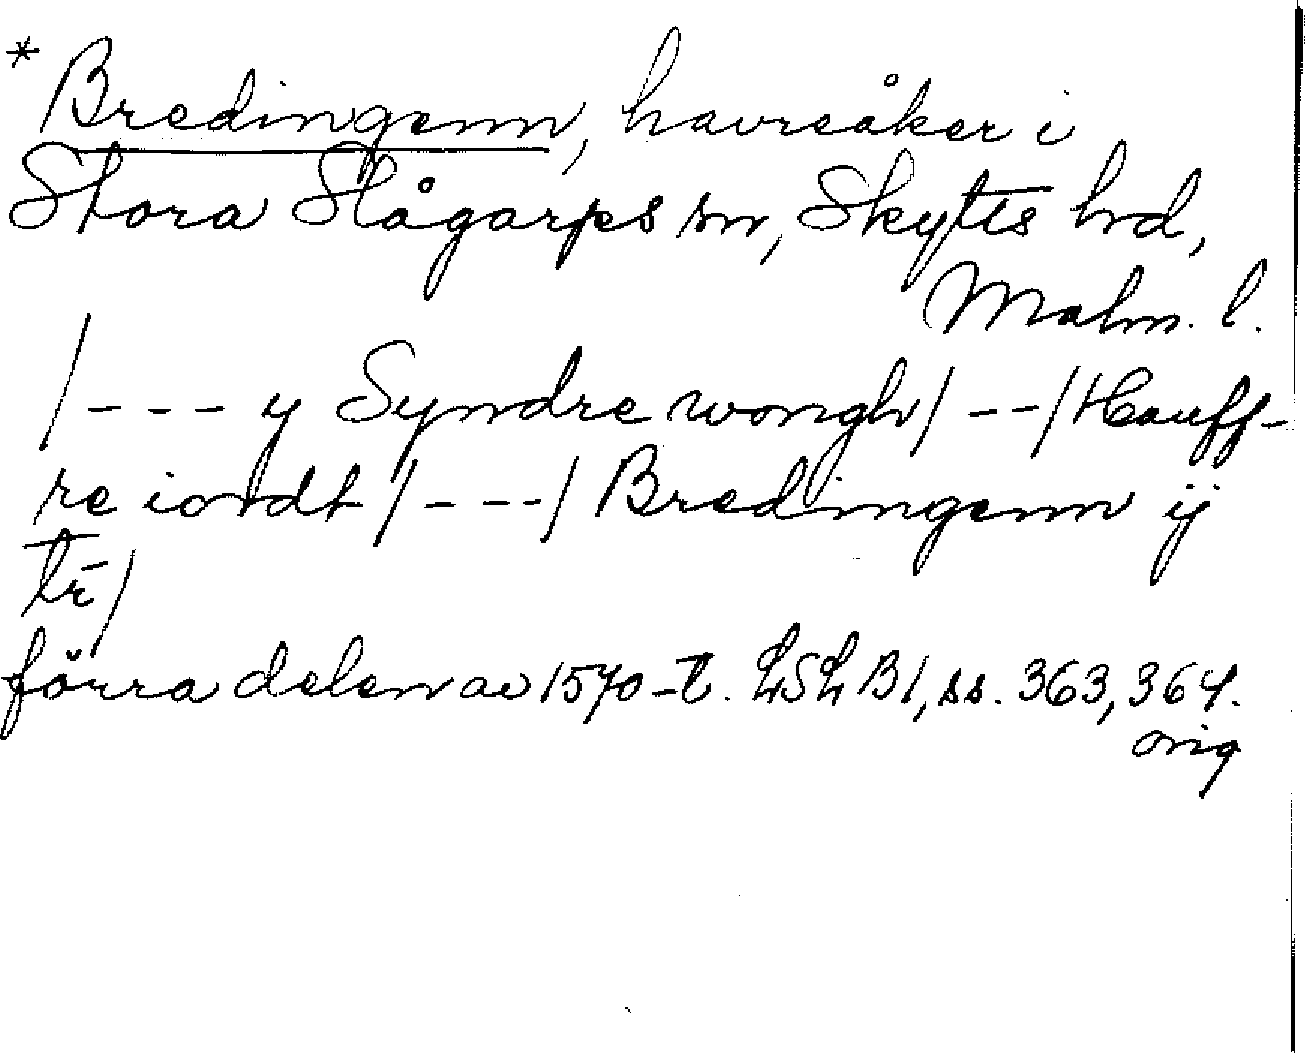 * Bredingenn, havreåker i
Stora Slågarps sn, Skytts hd,
Malm. l.
/--- y Syndre wongh/--/Hauff-
re iordt/---/ Bredingenn ij
tr̄/
förra delen av 1570-t. LSLB1, ss. 363, 364.
orig